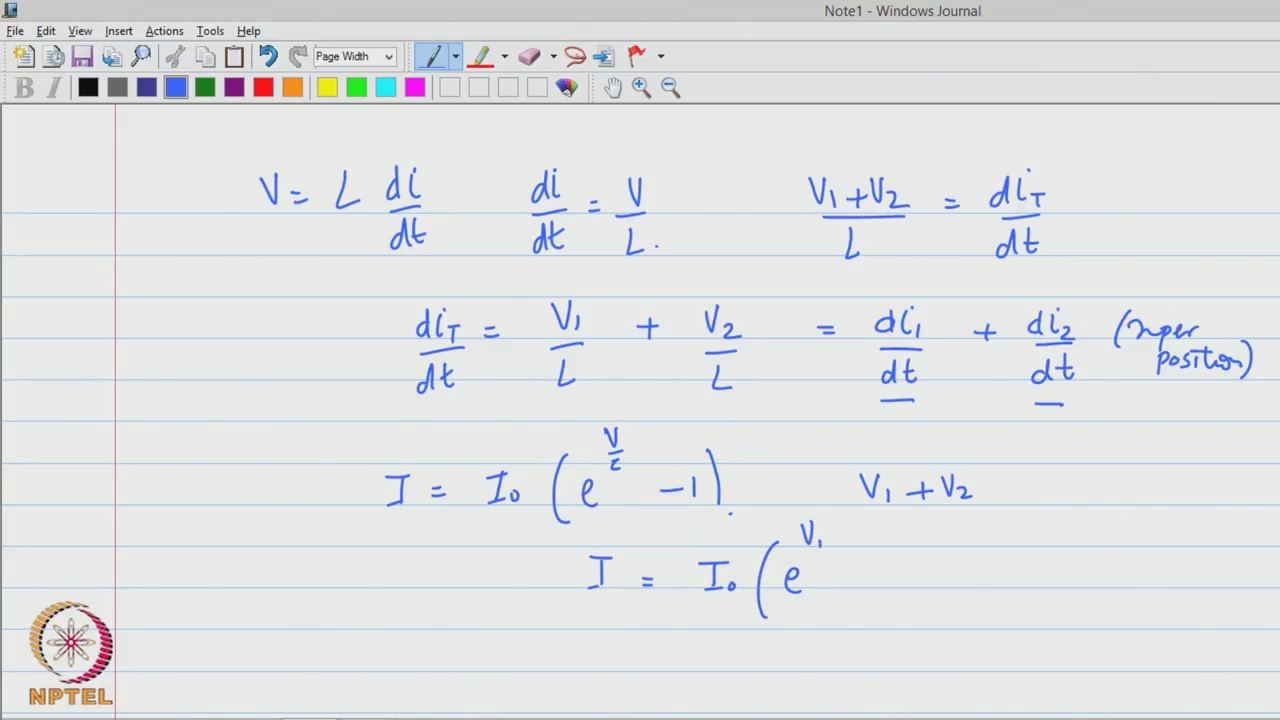 Note1 - Windows Journal
File Edit View Insert Actions Tools Help
Page Width
B I
V = L di/dt di/dt = V/L. (V1 + V2)/L = diT/dt
diT/dt = V1/L + V2/L = di1/dt + di2/dt (super
position)
I = I0 ( e^(V/c) - 1 ). V1 + V2
I = I0 ( e^V1
NPTEL